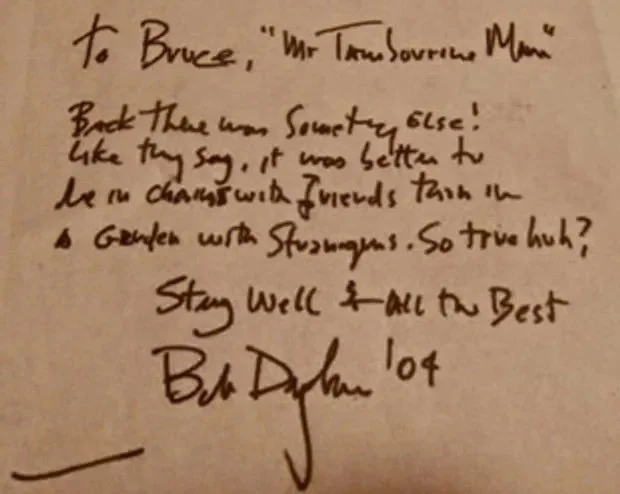 To Bruce, "Mr Tambourine Man"
Back there was Something Else!
Like they say, it was better to
be in chains with friends than in
a Garden with Strangers. So true huh?
Stay Well & All the Best
Bob Dylan '04